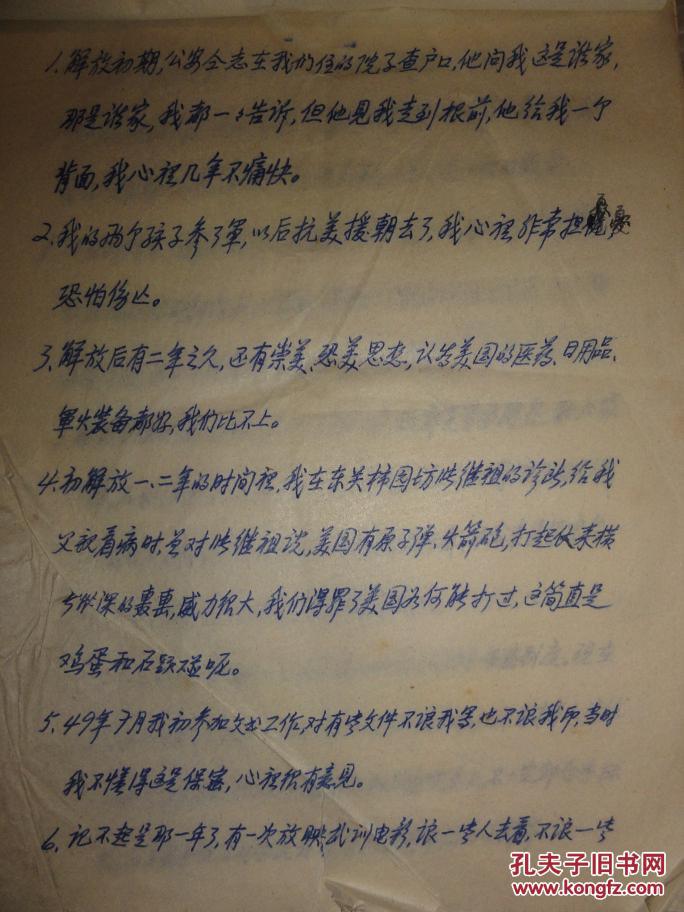 1、解放初期,公安仝志在我们住的院子查户口,他问我这是谁家,
那是谁家,我都一々告诉,但他見我走到根前,他给我一个
背面,我心裡几年不痛快。
2、我的两个孩子参了軍,以后抗美援朝去了,我心裡非常担憂
恐怕伤亡。
3、解放后有二年之久,还有崇美、恐美思想,认为美国的医药、日用品、
軍火装备都好,我们比不上。
4、初解放一、二年的时间裡,我在东关柿园坊张继祖的诊所,给我
父親看病时,曾对张继祖说,美国有原子弹、火箭砲,打起仗来横
的轰,威力很大,我们得罪了美国如何能打过,这简直是
鸡蛋和石頭碰呢。
5、49年7月我初参加文书工作,对有些文件不让我写,也不让我印,当时
我不懂得这是保密,心裡很有意見。
6、记不起是那一年了,有一次放映战训电影,让一些人去看,不让一些
孔夫子旧书网
www.kongfz.com